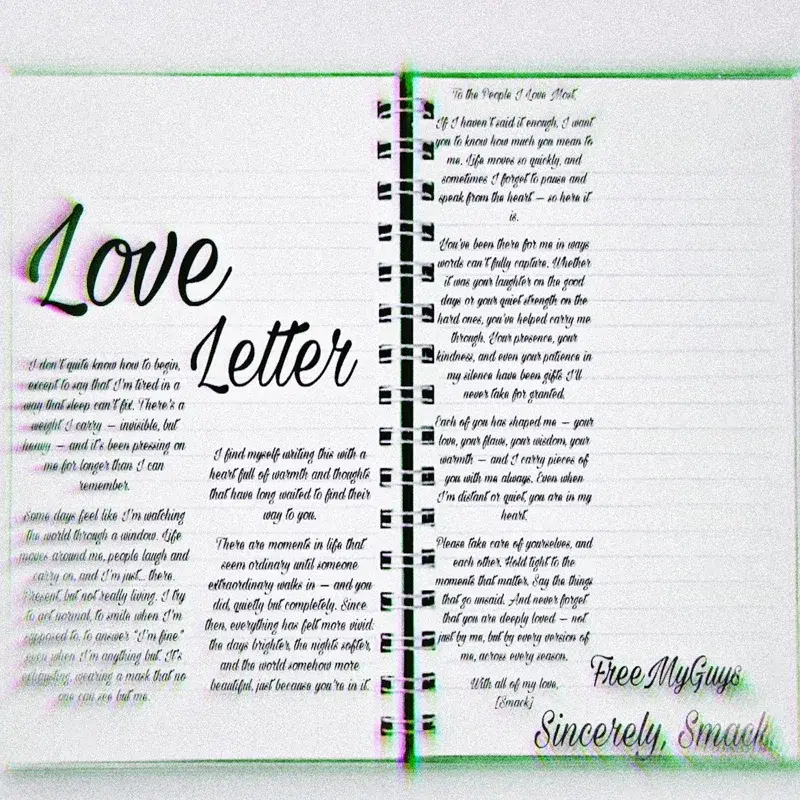 Love
Letter
I don't quite know how to begin,
except to say that I'm tired in a
way that sleep can't fix. There's a
weight I carry — invisible, but
heavy — and it's been pressing on
me for longer than I can
remember.
Some days feel like I'm watching
the world through a window. Life
moves around me, people laugh and
carry on, and I'm just... there.
Present, but not really living. I try
to act normal, to smile when I'm
supposed to, to answer "I'm fine"
even when I'm anything but. It's
exhausting, wearing a mask that no
one can see but me.
I find myself writing this with a
heart full of warmth and thoughts
that have long waited to find their
way to you.
There are moments in life that
seem ordinary until someone
extraordinary walks in — and you
did, quietly but completely. Since
then, everything has felt more vivid:
the days brighter, the nights softer,
and the world somehow more
beautiful, just because you're in it.
To the People I Love Most,
If I haven't said it enough, I want
you to know how much you mean to
me. Life moves so quickly, and
sometimes I forget to pause and
speak from the heart — so here it
is.
You've been there for me in ways
words can't fully capture. Whether
it was your laughter on the good
days or your quiet strength on the
hard ones, you've helped carry me
through. Your presence, your
kindness, and even your patience in
my silence have been gifts I'll
never take for granted.
Each of you has shaped me — your
love, your flaws, your wisdom, your
warmth — and I carry pieces of
you with me always. Even when
I'm distant or quiet, you are in my
heart.
Please take care of yourselves, and
each other. Hold tight to the
moments that matter. Say the things
that go unsaid. And never forget
that you are deeply loved — not
just by me, but by every version of
me, across every season.
With all of my love,
[Smack]
FreeMyGuys
Sincerely, Smack